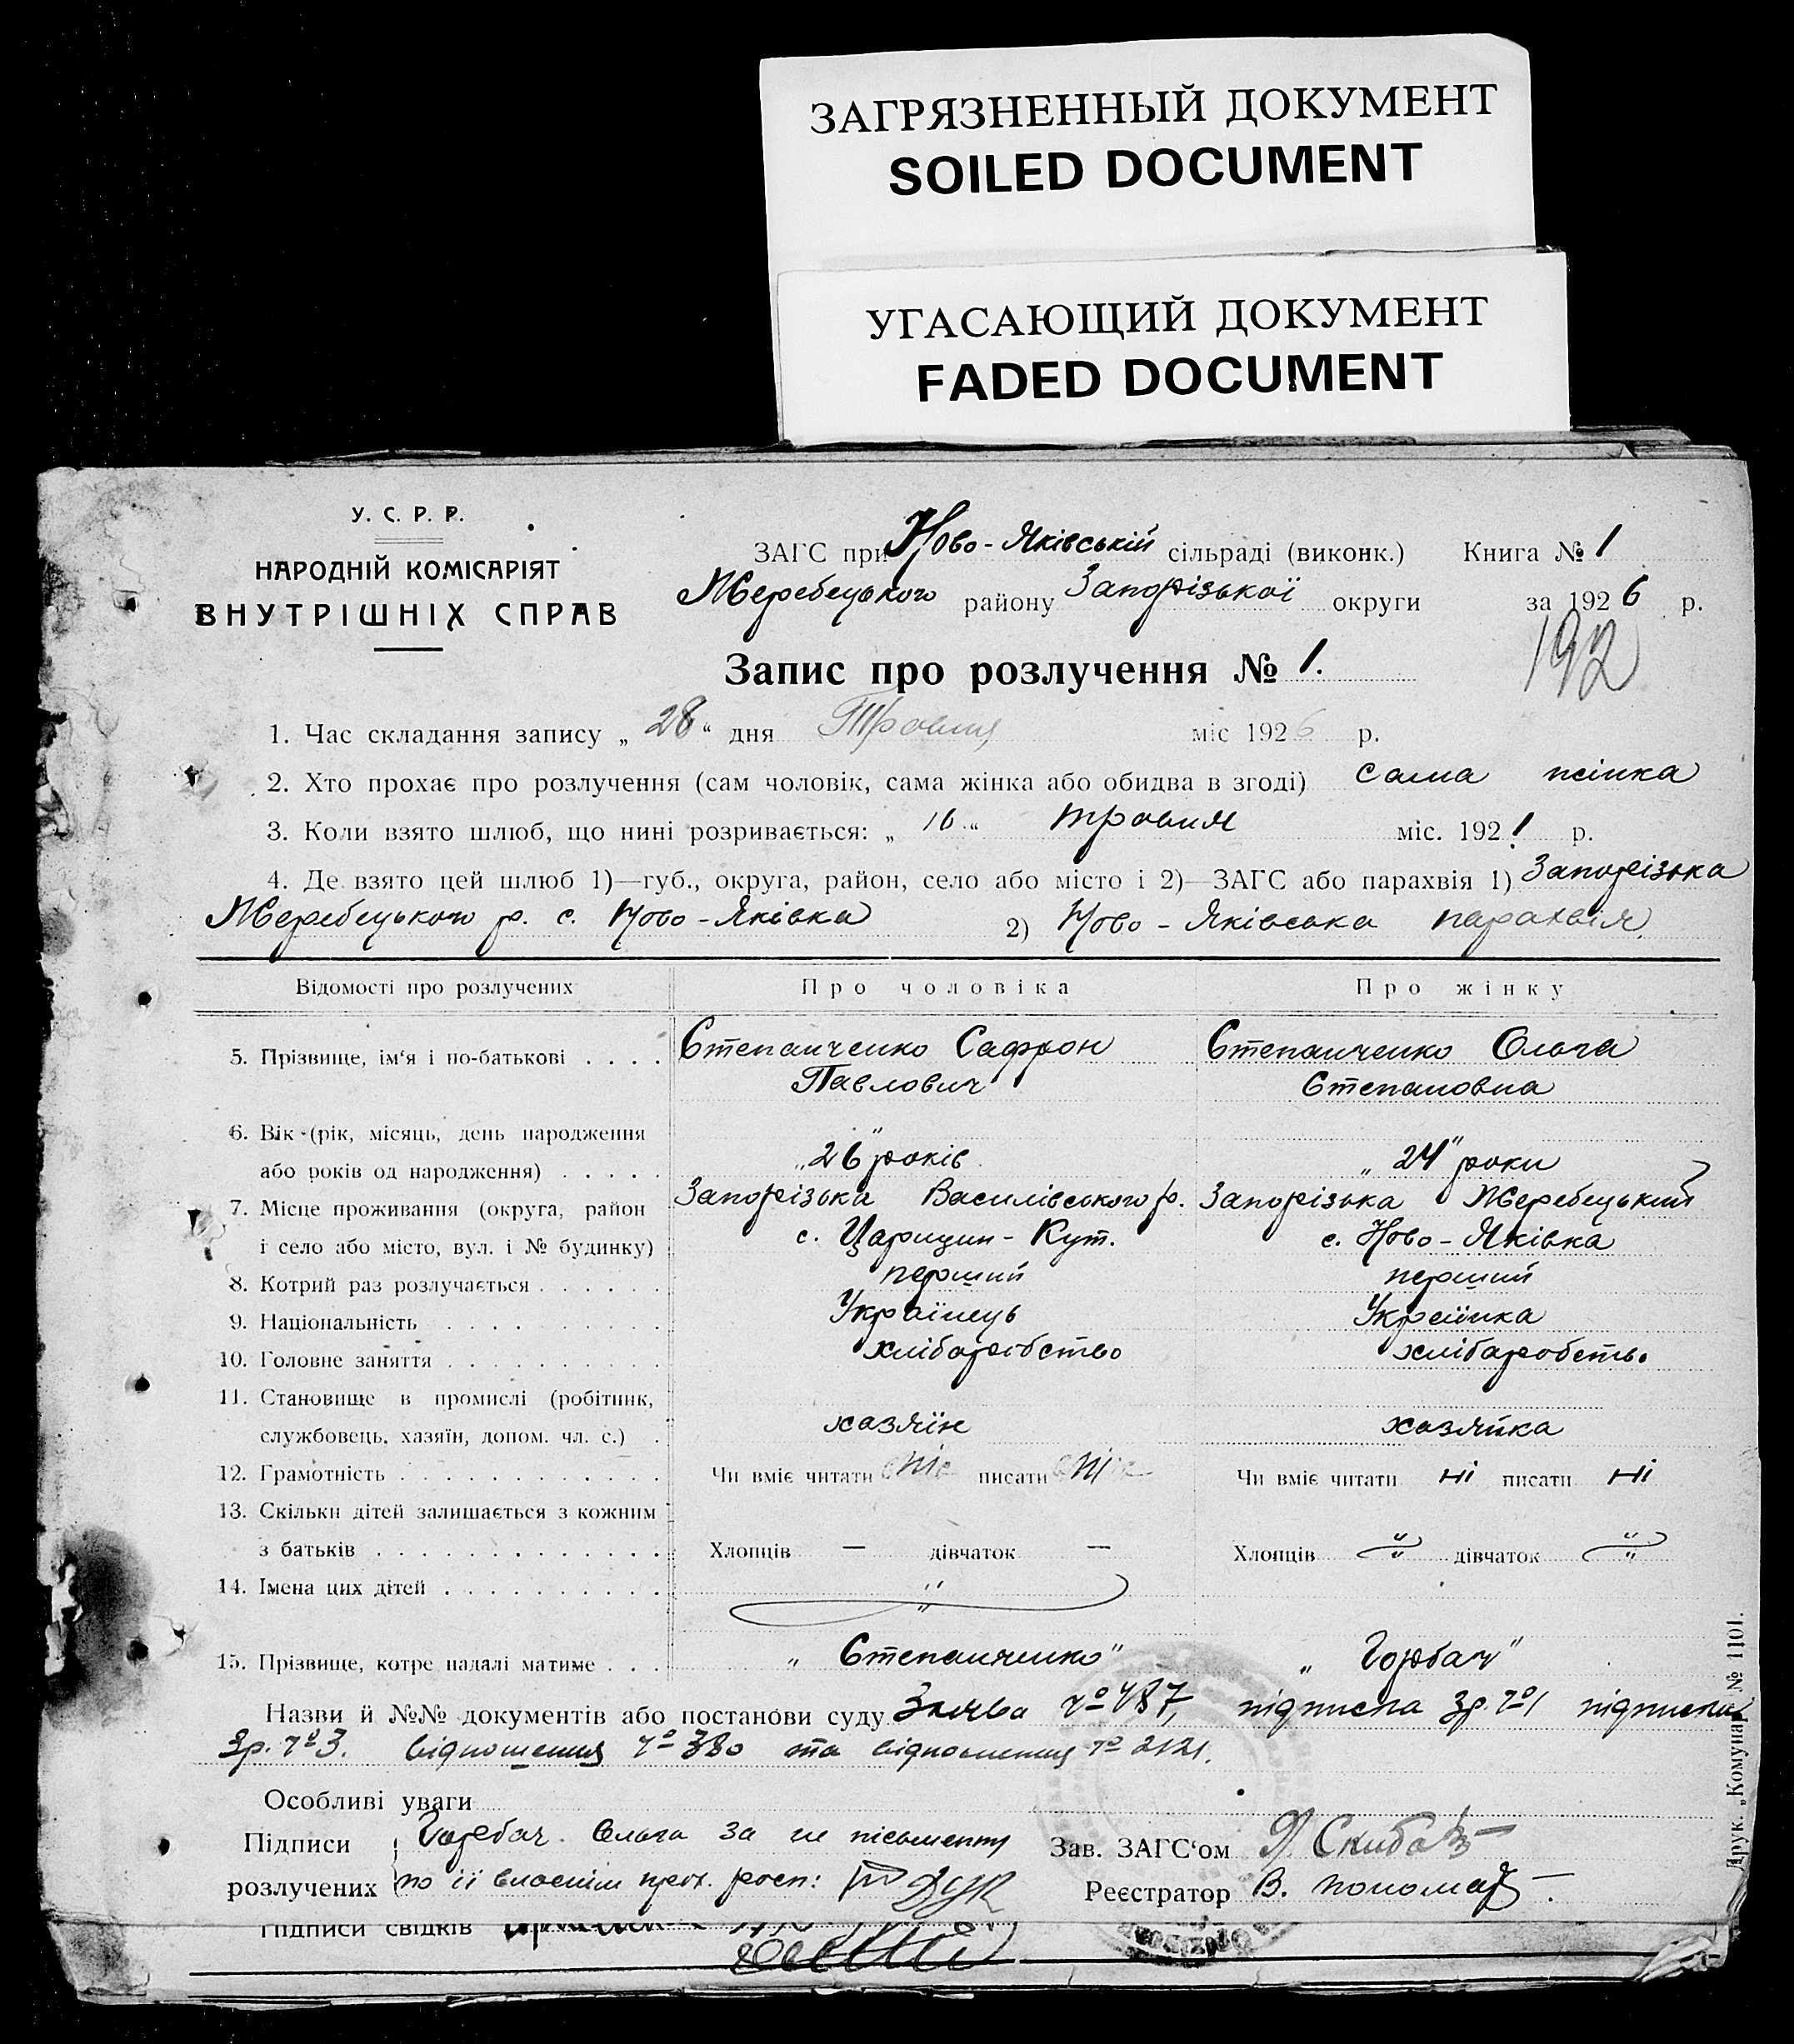 ЗАГРЯЗНЕННЫЙ ДОКУМЕНТ
SOILED DOCUMENT
УГАСАЮЩИЙ ДОКУМЕНТ
FADED DOCUMENT
У. С. Р. Р.
НАРОДНІЙ КОМІСАРІЯТ
ВНУТРІШНІХ СПРАВ
ЗАГС при Ново-Яківській сільраді (виконк.) Книга № 1
Жеребецького району Запорізької округи за 1926 р.
192
Запис про розлучення № 1.
1. Час складання запису „28“ дня Травня міс 1926 р.
2. Хто прохає про розлучення (сам чоловік, сама жінка або обидва в згоді) сама жінка
3. Коли взято шлюб, що нині розривається: „16“ травня міс. 1921 р.
4. Де взято цей шлюб 1)—губ., округа, район, село або місто і 2)—ЗАГС або парахвія 1) Запорізька
Жеребецького р. с. Ново-Яківка 2) Ново-Яківська парахвія
Відомості про розлучених Про чоловіка Про жінку
5. Прізвище, ім‘я і по-батькові . . . . Степанченко Сафрон Степанченко Ольга
Павлович Степановна
6. Вік (рік, місяць, день народження
або років од народження) . . . . . „26" років „24" роки
7. Місце проживання (округа, район Запорізька Василівського р. Запорізька Жеребецький
і село або місто, вул. і № будинку) с. Царицин-Кут. с. Ново-Яківка
8. Котрий раз розлучається . . . . . . перший перший
9. Національність . . . . . . . . Українець Українка
10. Головне заняття . . . . . . . . . . хліборобство хліборобство
11. Становище в промислі (робітник,
службовець, хазяїн, допом. чл. с.) . хазяїн хазяйка
12. Грамотність . . . . . . . . . . . . Чи вміє читати писати Чи вміє читати ні писати ні
13. Скільки дітей залишається з кожним
з батьків . . . . . . . . . . . . . Хлопців — дівчаток — Хлопців " дівчаток "
14. Імена цих дітей . . . . . . . . . . "
15. Прізвище, котре надалі матиме . . . „Степанченко" „Горбач"
Назви й №№ документів або постанови суду Заява № 487, підписка гр. № 1 підписка
гр. № 3. відношення № 380 та відношення № 2121.
Особливі уваги
Підписи Горбач Ольга за не письменну Зав. ЗАГС‘ом Скиба
розлучених по її власнім прох. росп: Реєстратор В. Пономар
Підписи свідків
Друк. „Комунар“ № 1101.